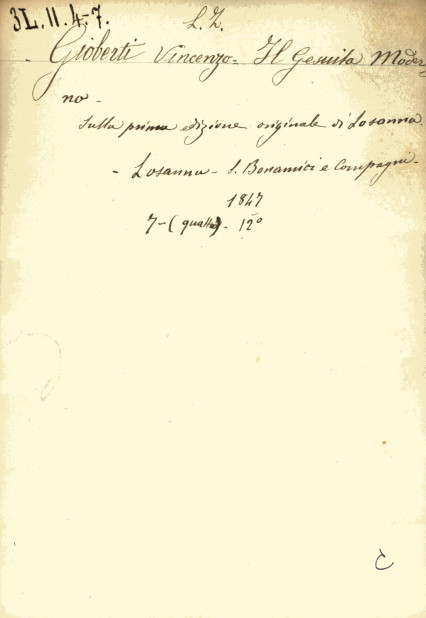 3L. II. 4-7.
L. Z.
Gioberti Vincenzo = Il Gesuita Moder-
no -
Sulla prima edizione originale di Losanna.
- Losanna - S. Bonamici e Compagni -
1847
7 - (quattro) - 12º
C